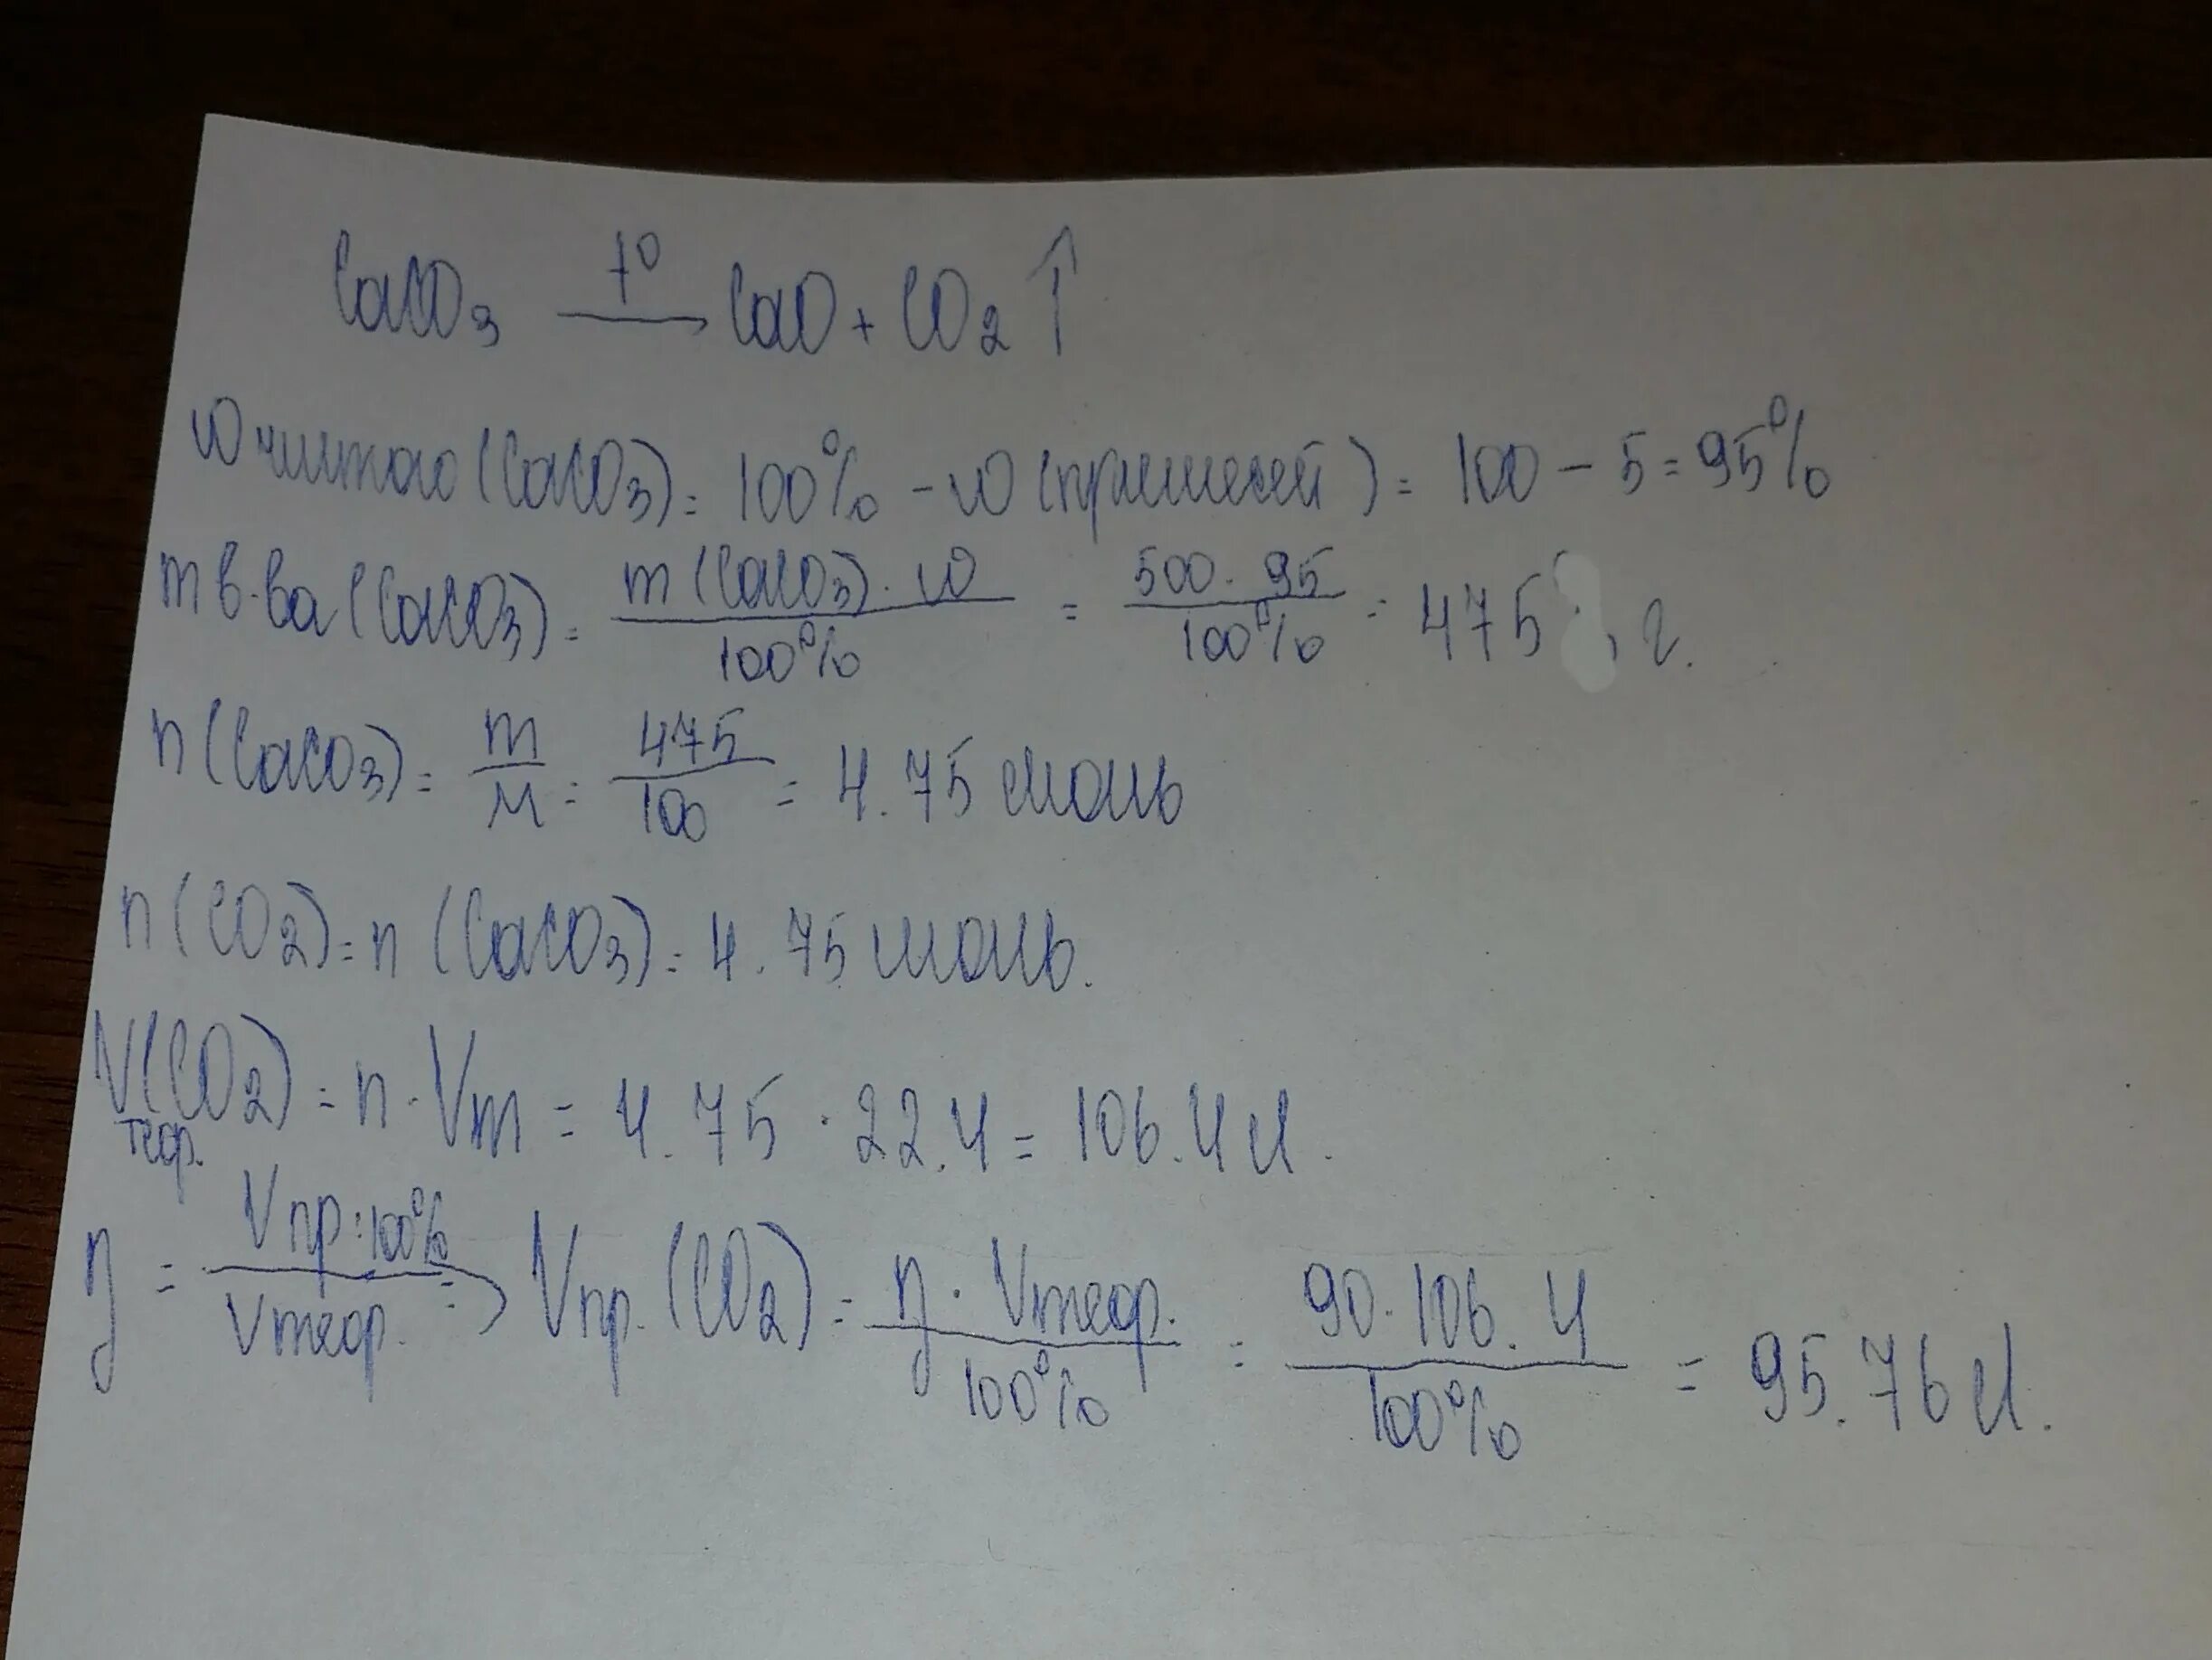 CaCO3 —t°→ CaO + CO2 ↑
W чистого (CaCO3) = 100% - W (примесей) = 100 - 5 = 95%
m в-ва (CaCO3) = m (CaCO3) · W / 100% = 500 · 95 / 100% = 475 , г.
n (CaCO3) = m / M = 475 / 100 = 4.75 моль
n (CO2) = n (CaCO3) = 4.75 моль.
V(CO2) теор. = n · Vm = 4.75 · 22.4 = 106.4 л.
η = Vпр · 100% / Vтеор. => Vпр. (CO2) = η · Vтеор. / 100% = 90 · 106.4 / 100% = 95.76 л.